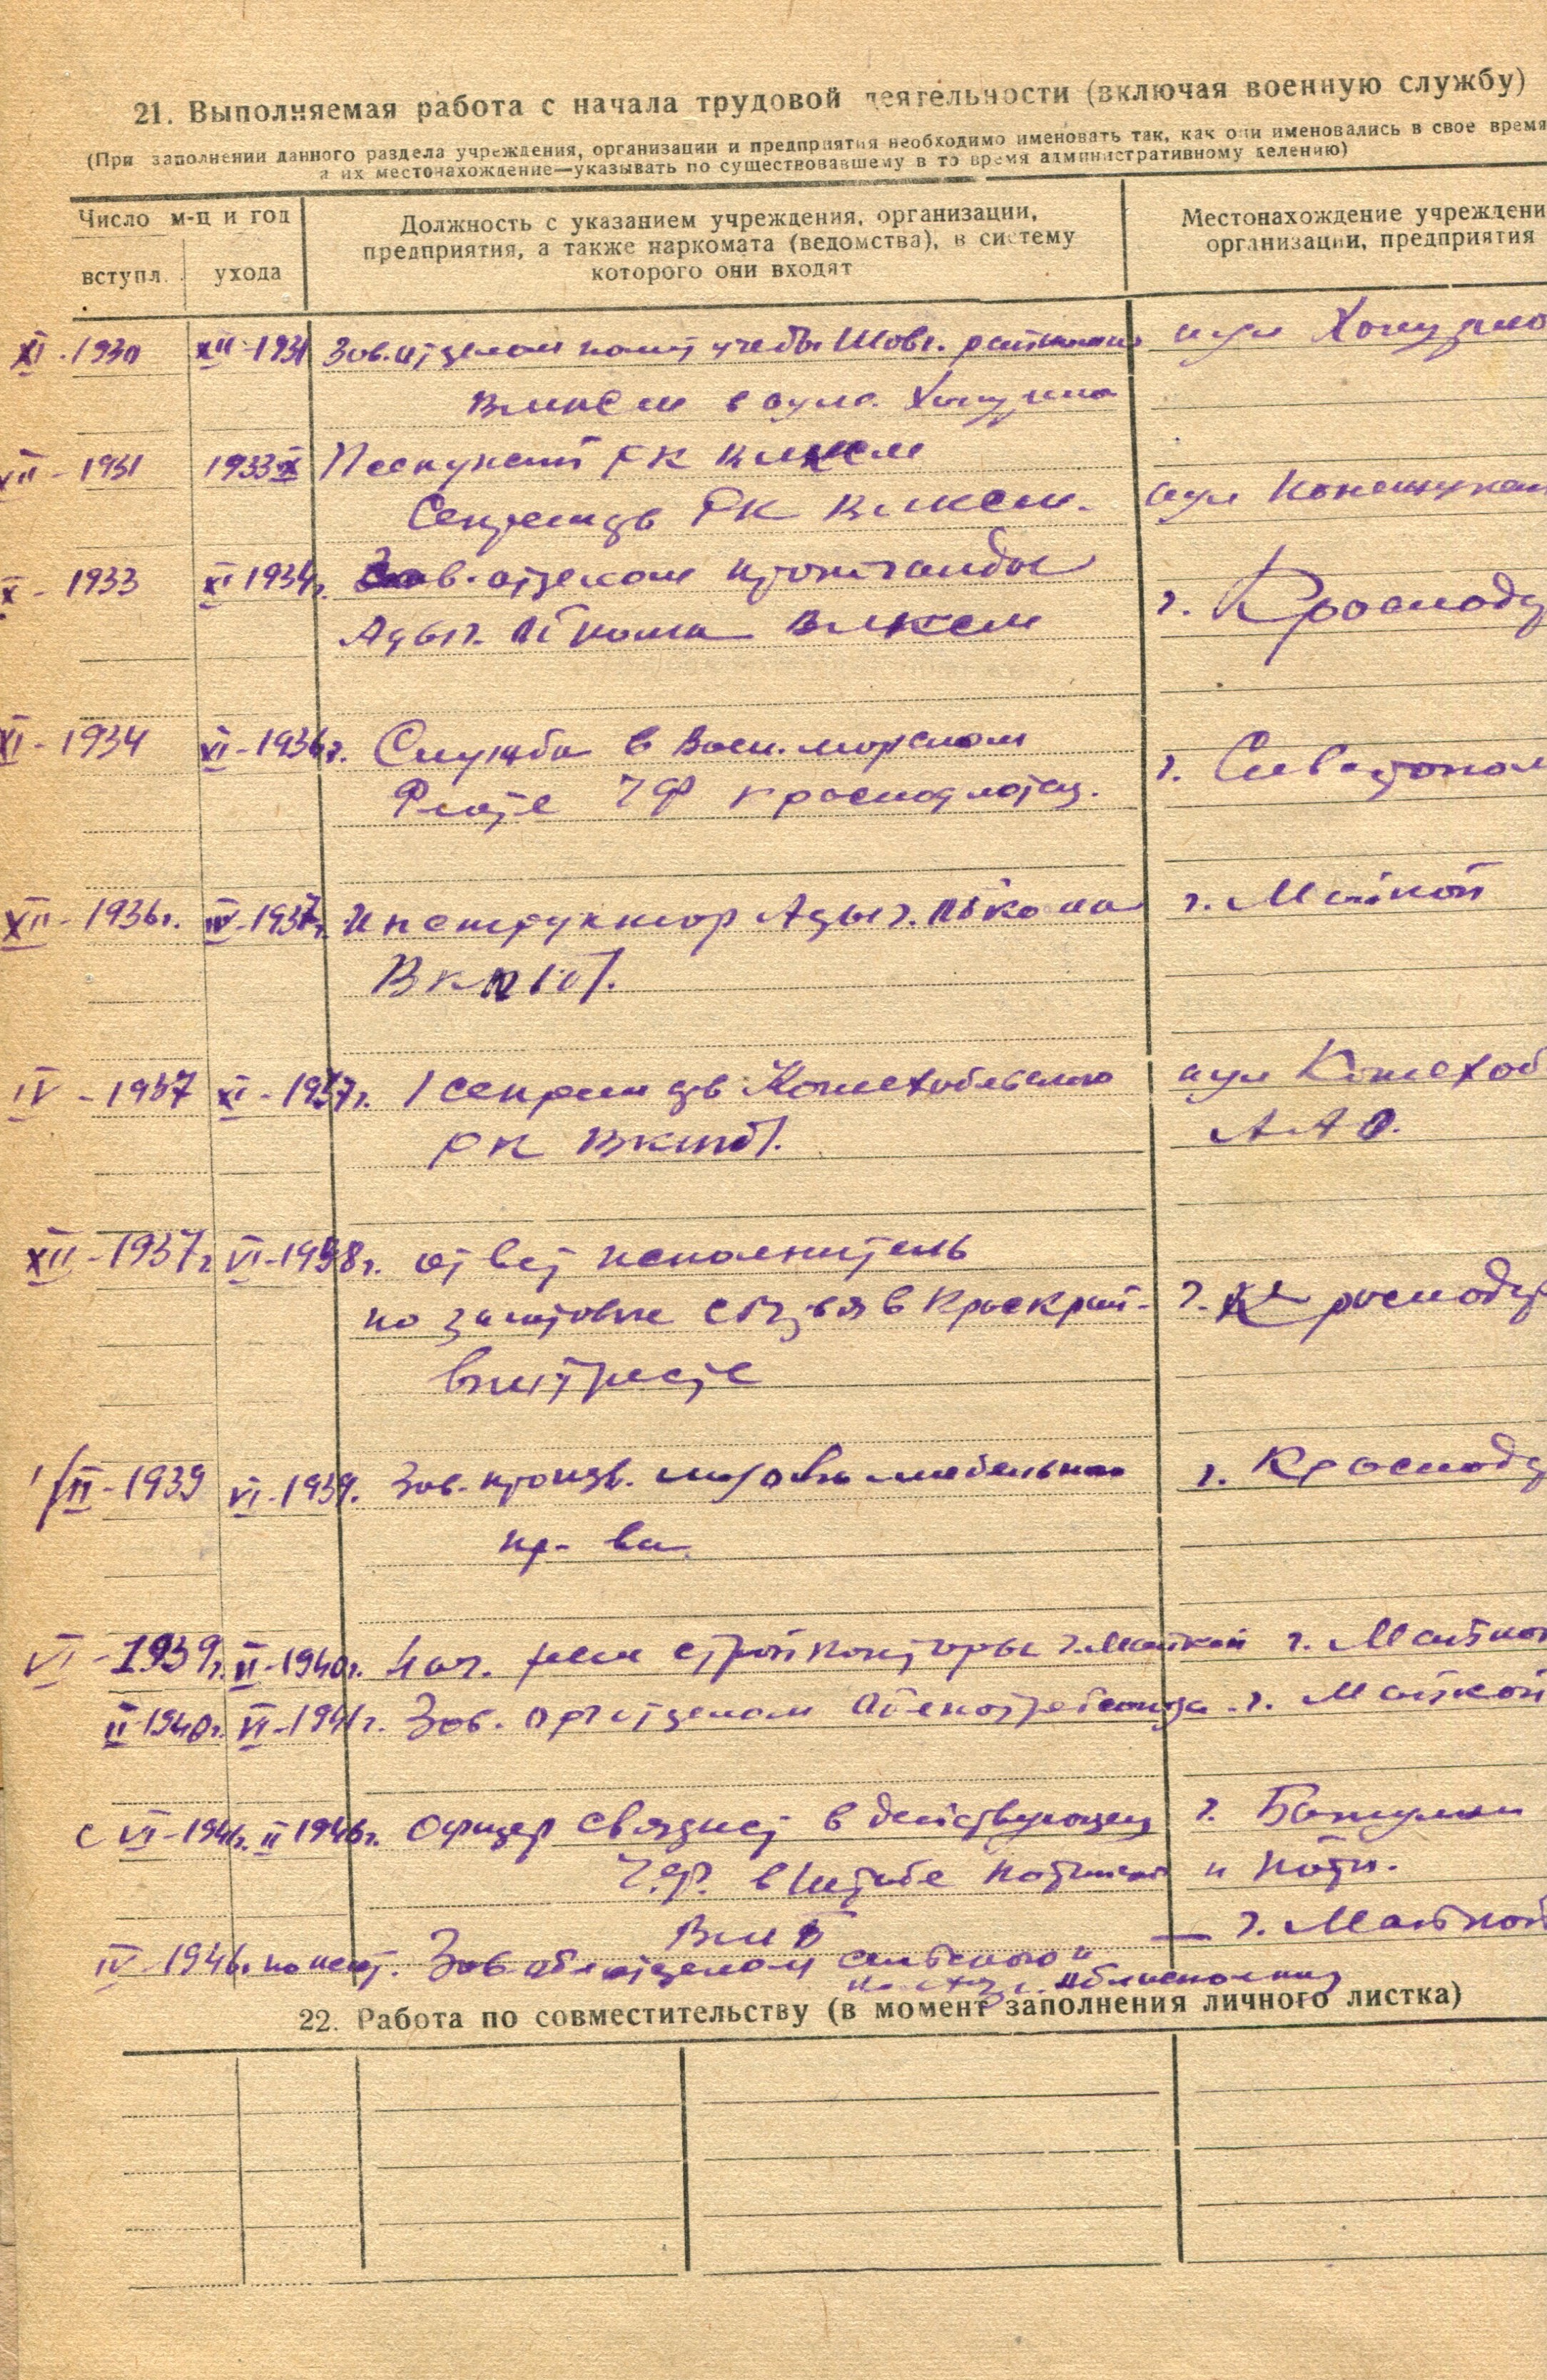 21. Выполняемая работа с начала трудовой деятельности (включая военную службу)
(При заполнении данного раздела учреждения, организации и предприятия необходимо именовать так, как они именовались в свое время
а их местонахождение—указывать по существовавшему в то время административному делению)
Число м-ц и год
вступл. ухода
Должность с указанием учреждения, организации,
предприятия, а также наркомата (ведомства), в систему
которого они входят
Местонахождение учреждени
организации, предприятия
XI-1930 XII-1931 Зав. отделом полит учебы Шовг. райкома аул
ВЛКСМ в ауле
VII-1931 1933 X РК ВЛКСМ
Секретарь РК ВЛКСМ. аул
X-1933 XI 1934г. Зав. отделом
Адыг. Обкома ВЛКСМ г. Краснода
XI-1934 XI-1936г. Служба в Воен. морском
Флоте ЧФ краснофлотец. г. Севастопол
XII-1936г. IV-1937г. Инструктор Адыг. Обкома г. Майкоп
ВКП(б).
IV-1937 XI-1937г. 1 секретарь Кошехабльского аул Кошехаб
РК ВКП(б). А.А.О.
XII-1937г VI-1938г. ответ исполнитель
по в Краскрай- г. Краснода
1/II-1939 VI-1939. Зав. произв. мебельного г. Краснода
пр-ва
VI-1939г. II-1940г. Нач. рем стройконторы г. Майкоп г. Майкоп
II-1940г. VI-1941г. Зав. орготделом Облпотребсоюза г. Майкоп
с VI-1941г. II 1946г. Офицер в действующем г.
Ч.Ф. в штабе и Поти.
ВМБ
IV-1946г. по наст. Зав. облотделом сельского и — г. Майкоп
Облисполкома
22. Работа по совместительству (в момент заполнения личного листка)